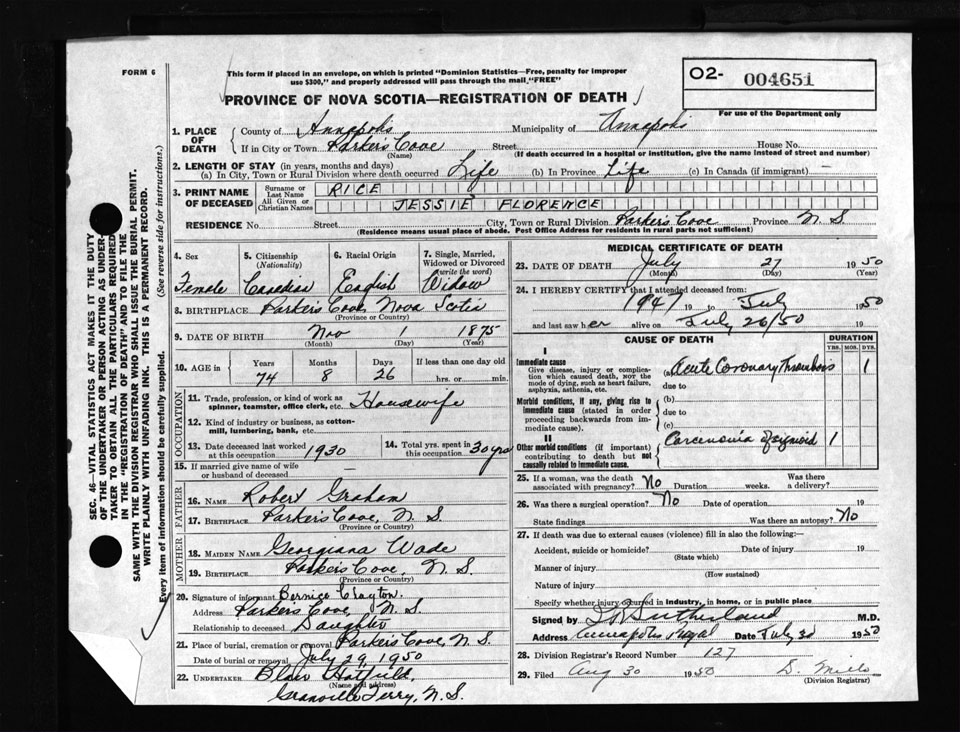 FORM 6
This form if placed in an envelope, on which is printed "Dominion Statistics—Free, penalty for improper
use $300," and properly addressed will pass through the mail, "FREE"
PROVINCE OF NOVA SCOTIA—REGISTRATION OF DEATH
O2- 004651
For use of the Department only
1. PLACE OF DEATH County of Annapolis Municipality of Annapolis
If in City or Town Parker's Cove Street House No.
(Name) (If death occurred in a hospital or institution, give the name instead of street and number)
2. LENGTH OF STAY (in years, months and days)
(a) In City, Town or Rural Division where death occurred Life (b) In Province Life (c) In Canada (if immigrant)
3. PRINT NAME OF DECEASED Surname or Last Name RICE
All Given or Christian Names JESSIE FLORENCE
RESIDENCE No. Street City, Town or Rural Division Parker's Cove Province N S
(Residence means usual place of abode. Post Office Address for residents in rural parts not sufficient)
4. Sex 5. Citizenship (Nationality) 6. Racial Origin 7. Single, Married, Widowed or Divorced (write the word)
Female Canadian English Widow
8. BIRTHPLACE Parker's Cove, Nova Scotia
(Province or Country)
9. DATE OF BIRTH Nov 1875
(Month) (Day) (Year)
10. AGE in Years Months Days If less than one day old
74 8 26 hrs. or min.
OCCUPATION
11. Trade, profession, or kind of work as
spinner, teamster, office clerk, etc. Housewife
12. Kind of industry or business, as cotton-
mill, lumbering, bank, etc.
13. Date deceased last worked at this occupation 1930 14. Total yrs. spent in this occupation 30 yrs
15. If married give name of wife
or husband of deceased
FATHER
16. NAME Robert Graham
17. BIRTHPLACE Parker's Cove, N. S.
(Province or Country)
MOTHER
18. MAIDEN NAME Georgiana Wade
19. BIRTHPLACE Parkers Cove, N. S.
(Province or Country)
20. Signature of informant Bernice Clayton.
Address Parkers Cove, N. S.
Relationship to deceased Daughter
21. Place of burial, cremation or removal Parker's Cove, N. S.
Date of burial or removal July 29, 1950
22. UNDERTAKER Blair Hatfield,
(Name and address)
Granville Ferry, N. S.
MEDICAL CERTIFICATE OF DEATH
23. DATE OF DEATH July 27 1950
(Month) (Day) (Year)
24. I HEREBY CERTIFY that I attended deceased from:
1947 19 to July 1950
and last saw her alive on July 26/50 19
CAUSE OF DEATH DURATION
YRS. MOS. DYS.
I
Immediate cause
Give disease, injury or complica-
tion which caused death, NOT the
mode of dying, such as heart failure,
asphyxia, asthenia, etc.
(a) Acute Coronary Thrombosis 1
due to
Morbid conditions, if any, giving rise to
immediate cause (stated in order
proceeding backwards from im-
mediate cause).
(b)
due to
(c)
II
Other morbid conditions (if important)
contributing to death but not
causally related to immediate cause.
Carcenomia of sigmoid 1
25. If a woman, was the death Was there
associated with pregnancy? No Duration weeks. a delivery?
26. Was there a surgical operation? No Date of operation 19
State findings Was there an autopsy? No
27. If death was due to external causes (violence) fill in also the following:—
Accident, suicide or homicide? Date of injury 19
(State which)
Manner of injury
(How sustained)
Nature of injury
Specify whether injury occurred in industry, in home, or in public place
Signed by Sutherland M.D.
Address Annapolis Royal Date July 1950
28. Division Registrar's Record Number 127
29. Filed Aug 30 1950 D. Mills
(Division Registrar)
SEC. 46—VITAL STATISTICS ACT MAKES IT THE DUTY
OF THE UNDERTAKER OR PERSON ACTING AS UNDER-
TAKER TO OBTAIN ALL THE PARTICULARS REQUIRED
IN THE "REGISTRATION OF DEATH" AND TO FILE THE
SAME WITH THE DIVISION REGISTRAR WHO SHALL ISSUE THE BURIAL PERMIT.
WRITE PLAINLY WITH UNFADING INK. THIS IS A PERMANENT RECORD.
Every item of information should be carefully supplied. (See reverse side for instructions.)